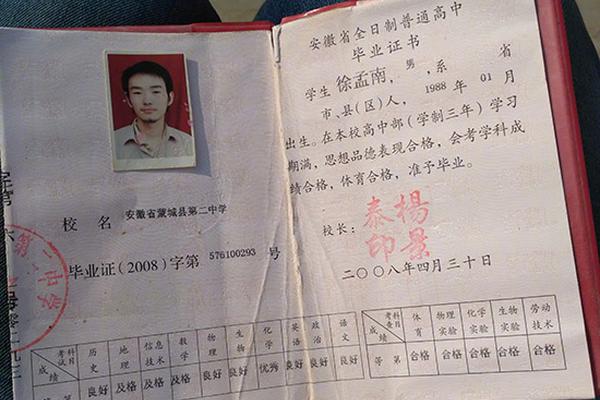 校名 安徽省蒙城县第二中学
毕业证(2008)字第 576100293 号
第二中学
考试科目 历史 地理 信息技术 数学 物理 生物 化学 英语 政治 语文
成绩 等第 良好 及格 及格 及格 良好 良好 优秀 良好 良好 良好
安徽省全日制普通高中
毕业证书
学生 徐孟南，男，系 省
市、县(区)人，1988 年 01 月
出生。在本校高中部(学制三年)学习
期满，思想品德表现合格，会考学科成
绩合格，体育合格，准予毕业。
校长：
秦杨印景
二〇〇八年四月三十日
考查科目 体育 物理实验 化学实验 生物实验 劳动技术
成绩 等第 合格 合格 合格 合格 合格